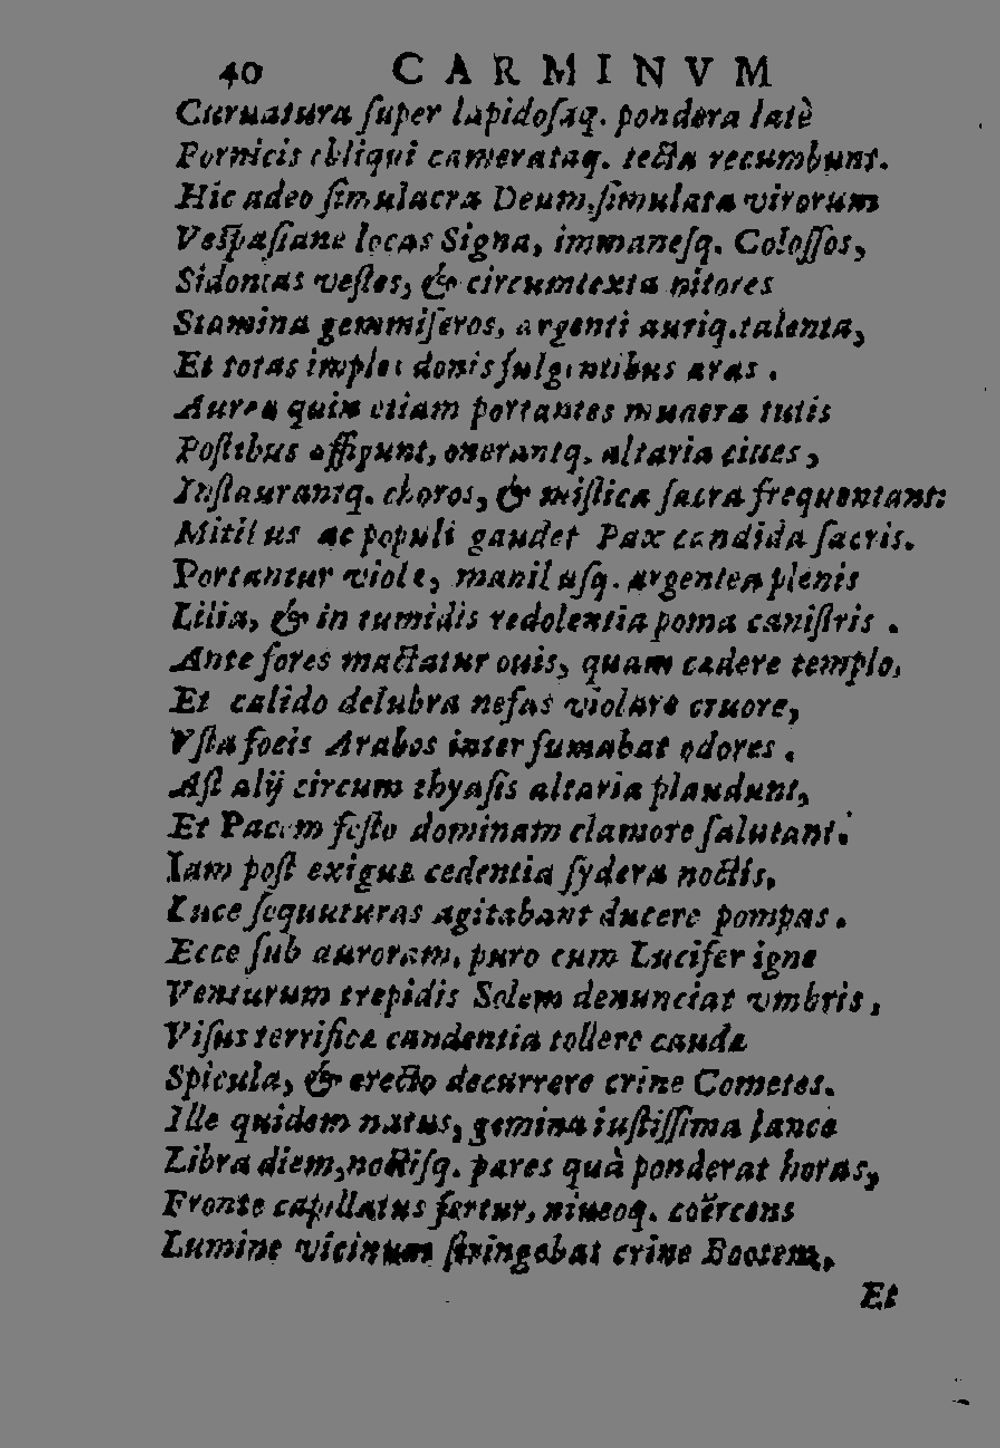 40 CARMINVM
Curuatura ſuper lapidoſaq. pondera latè
Fornicis obliqui camerataq. tecta recumbunt.
Hic adeo ſimulacra Deum, ſimulata virorum
Veſpaſiane locas Signa, immaneſq. Coloſſos,
Sidonias veſtes, & circumtexta nitores
Stamina gemmiferos, argenti auriq. talenta,
Et totas imples donis fulgentibus aras.
Aurea quin etiam portantes munera tutis
Poſtibus affigunt, onerantq. altaria ciues,
Inſtaurantq. choros, & miſtica ſacra frequentant:
Mitibus ac populi gaudet Pax candida ſacris.
Portantur viole, manibuſq. argentea plenis
Lilia, & in tumidis redolentia poma caniſtris.
Ante fores mactatur ouis, quam cædere templo,
Et calido delubra nefas violare cruore,
Vſta focis Arabos inter fumabat odores.
Aſt alij circum thyaſis altaria plaudunt,
Et Pacem feſto dominam clamore ſalutant.
Iam poſt exiguæ cedentia ſydera noctis,
Luce ſequuturas agitabant ducere pompas.
Ecce ſub auroram, puro cum Lucifer igne
Venturum trepidis Solem denunciat vmbris,
Viſus terrificæ candentia tollere caudæ
Spicula, & erecto decurrere crine Cometes.
Ille quidem natus, gemina iuſtiſſima lance
Libra diem, noctiſq. pares quà ponderat horas,
Fronte capillatus fertur, niueoq. coërcens
Lumine vicinum ſtringebat crine Bootem,
Et